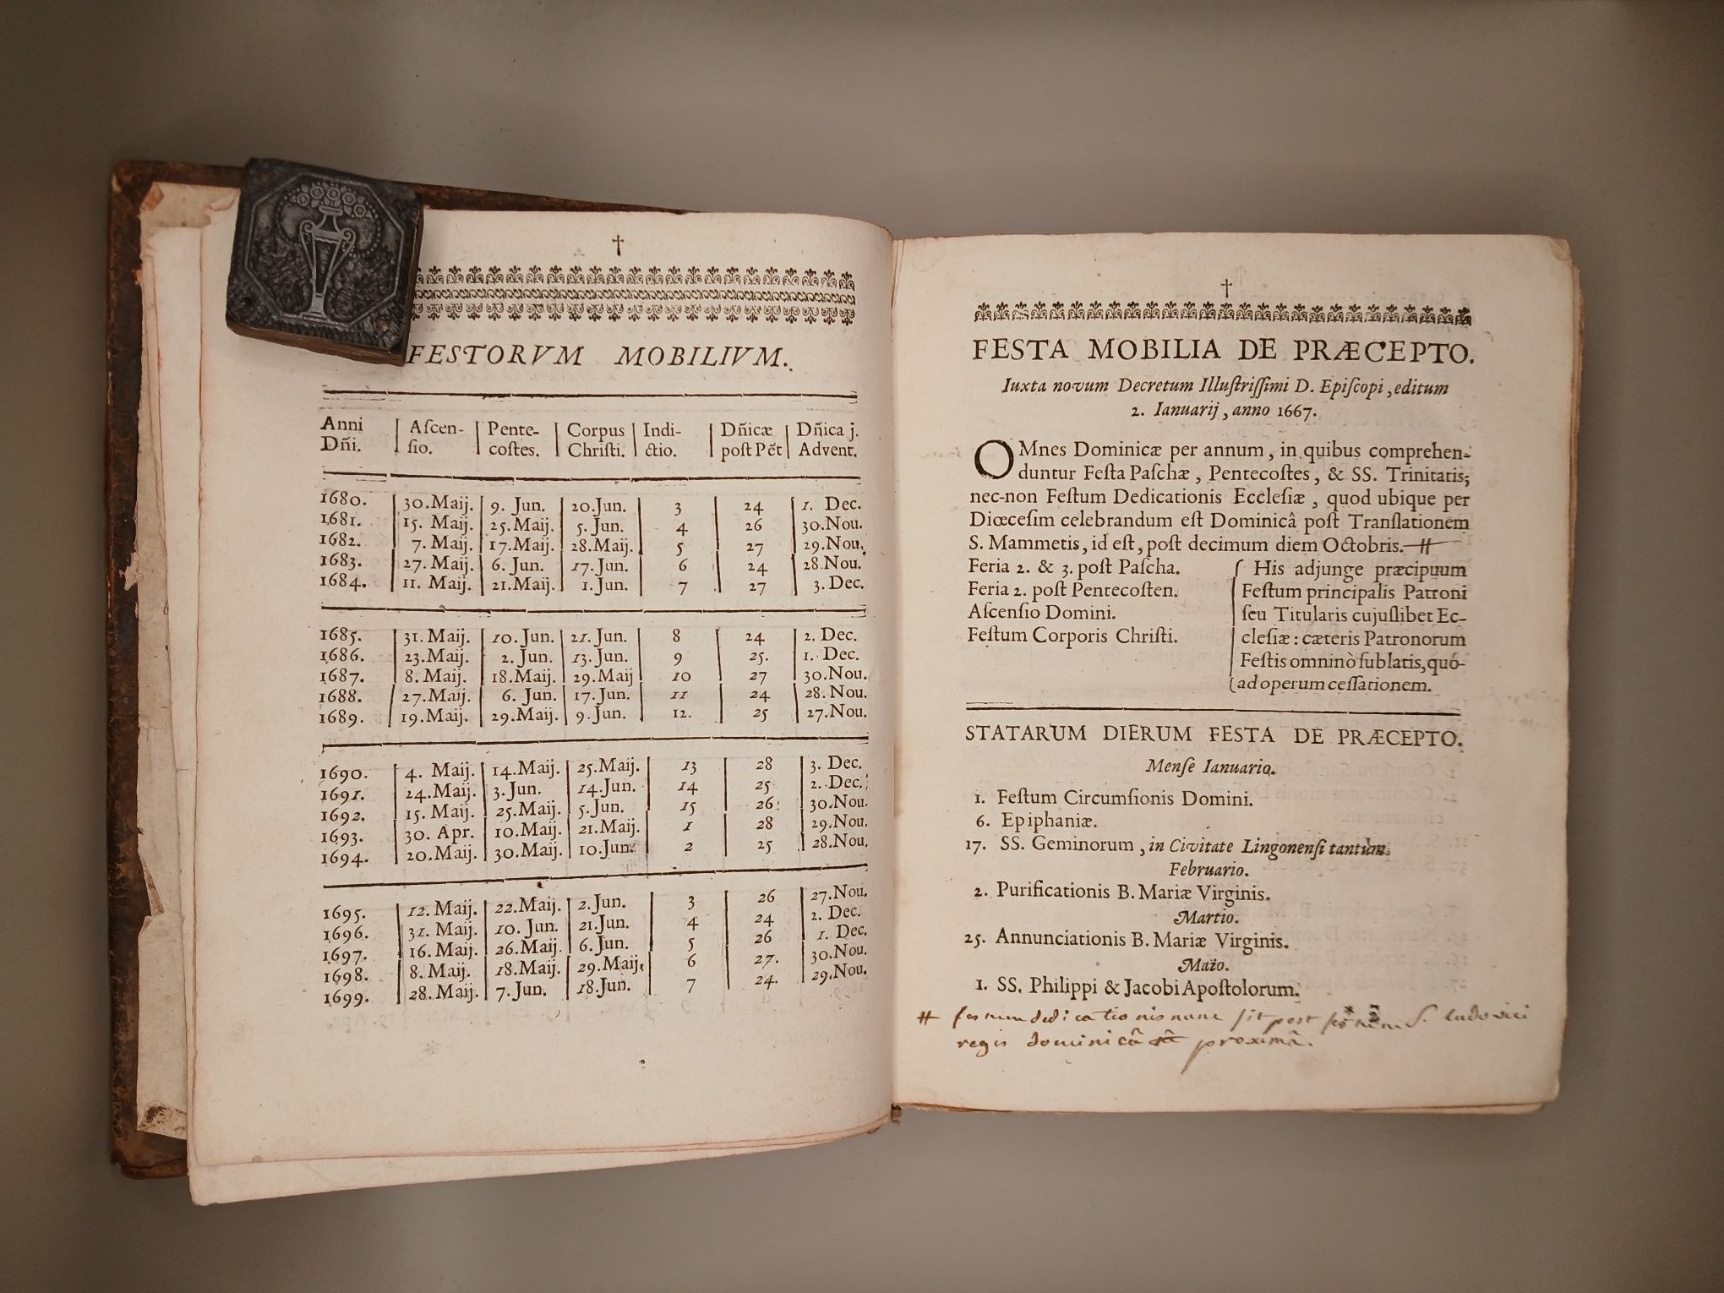 †
FESTORVM MOBILIVM.
Anni Dñi. | Ascen-sio. | Pente-costes. | Corpus Christi. | Indi-ctio. | Dñicæ post Pēt | Dñica j. Advent.
1680. | 30. Maij. | 9. Jun. | 20. Jun. | 3 | 24 | 1. Dec.
1681. | 15. Maij. | 25. Maij. | 5. Jun. | 4 | 26 | 30. Nou.
1682. | 7. Maij. | 17. Maij. | 28. Maij. | 5 | 27 | 29. Nou.
1683. | 27. Maij. | 6. Jun. | 17. Jun. | 6 | 24 | 28. Nou.
1684. | 11. Maij. | 21. Maij. | 1. Jun. | 7 | 27 | 3. Dec.
1685. | 31. Maij. | 10. Jun. | 21. Jun. | 8 | 24 | 2. Dec.
1686. | 23. Maij. | 2. Jun. | 13. Jun. | 9 | 25. | 1. Dec.
1687. | 8. Maij. | 18. Maij. | 29. Maij | 10 | 27 | 30. Nou.
1688. | 27. Maij. | 6. Jun. | 17. Jun. | 11 | 24 | 28. Nou.
1689. | 19. Maij. | 29. Maij. | 9. Jun. | 12. | 25 | 27. Nou.
1690. | 4. Maij. | 14. Maij. | 25. Maij. | 13 | 28 | 3. Dec.
1691. | 24. Maij. | 3. Jun. | 14. Jun. | 14 | 25 | 2. Dec.
1692. | 15. Maij. | 25. Maij. | 5. Jun. | 15 | 26 | 30. Nou.
1693. | 30. Apr. | 10. Maij. | 21. Maij. | 1 | 28 | 29. Nou.
1694. | 20. Maij. | 30. Maij. | 10. Jun. | 2 | 25 | 28. Nou.
1695. | 12. Maij. | 22. Maij. | 2. Jun. | 3 | 26 | 27. Nou.
1696. | 31. Maij. | 10. Jun. | 21. Jun. | 4 | 24 | 2. Dec.
1697. | 16. Maij. | 26. Maij. | 6. Jun. | 5 | 26 | 1. Dec.
1698. | 8. Maij. | 18. Maij. | 29. Maij. | 6 | 27. | 30. Nou.
1699. | 28. Maij. | 7. Jun. | 18. Jun. | 7 | 24. | 29. Nou.
†
FESTA MOBILIA DE PRÆCEPTO.
Iuxta novum Decretum Illuſtriſſimi D. Epiſcopi, editum
2. Ianuarij, anno 1667.
OMnes Dominicæ per annum, in quibus comprehen-
duntur Feſta Paſchæ, Pentecoſtes, & SS. Trinitatis;
nec-non Feſtum Dedicationis Eccleſiæ, quod ubique per
Diœceſim celebrandum eſt Dominicâ poſt Tranſlationem
S. Mammetis, id eſt, poſt decimum diem Octobris. #
Feria 2. & 3. poſt Paſcha.
Feria 2. poſt Pentecoſten.
Aſcenſio Domini.
Feſtum Corporis Chriſti.
His adjunge præcipuum
Feſtum principalis Patroni
ſeu Titularis cujuſlibet Ec-
cleſiæ: cæteris Patronorum
Feſtis omninò ſublatis, quó-
ad operum ceſſationem.
STATARUM DIERUM FESTA DE PRÆCEPTO.
Menſe Ianuario.
1. Feſtum Circumſionis Domini.
6. Epiphaniæ.
17. SS. Geminorum, in Civitate Lingonenſi tantùm.
Februario.
2. Purificationis B. Mariæ Virginis.
Martio.
25. Annunciationis B. Mariæ Virginis.
Maio.
1. SS. Philippi & Jacobi Apoſtolorum.
# festum dedicationis nunc fit post S. ludovici
regis dominicâ proximâ.